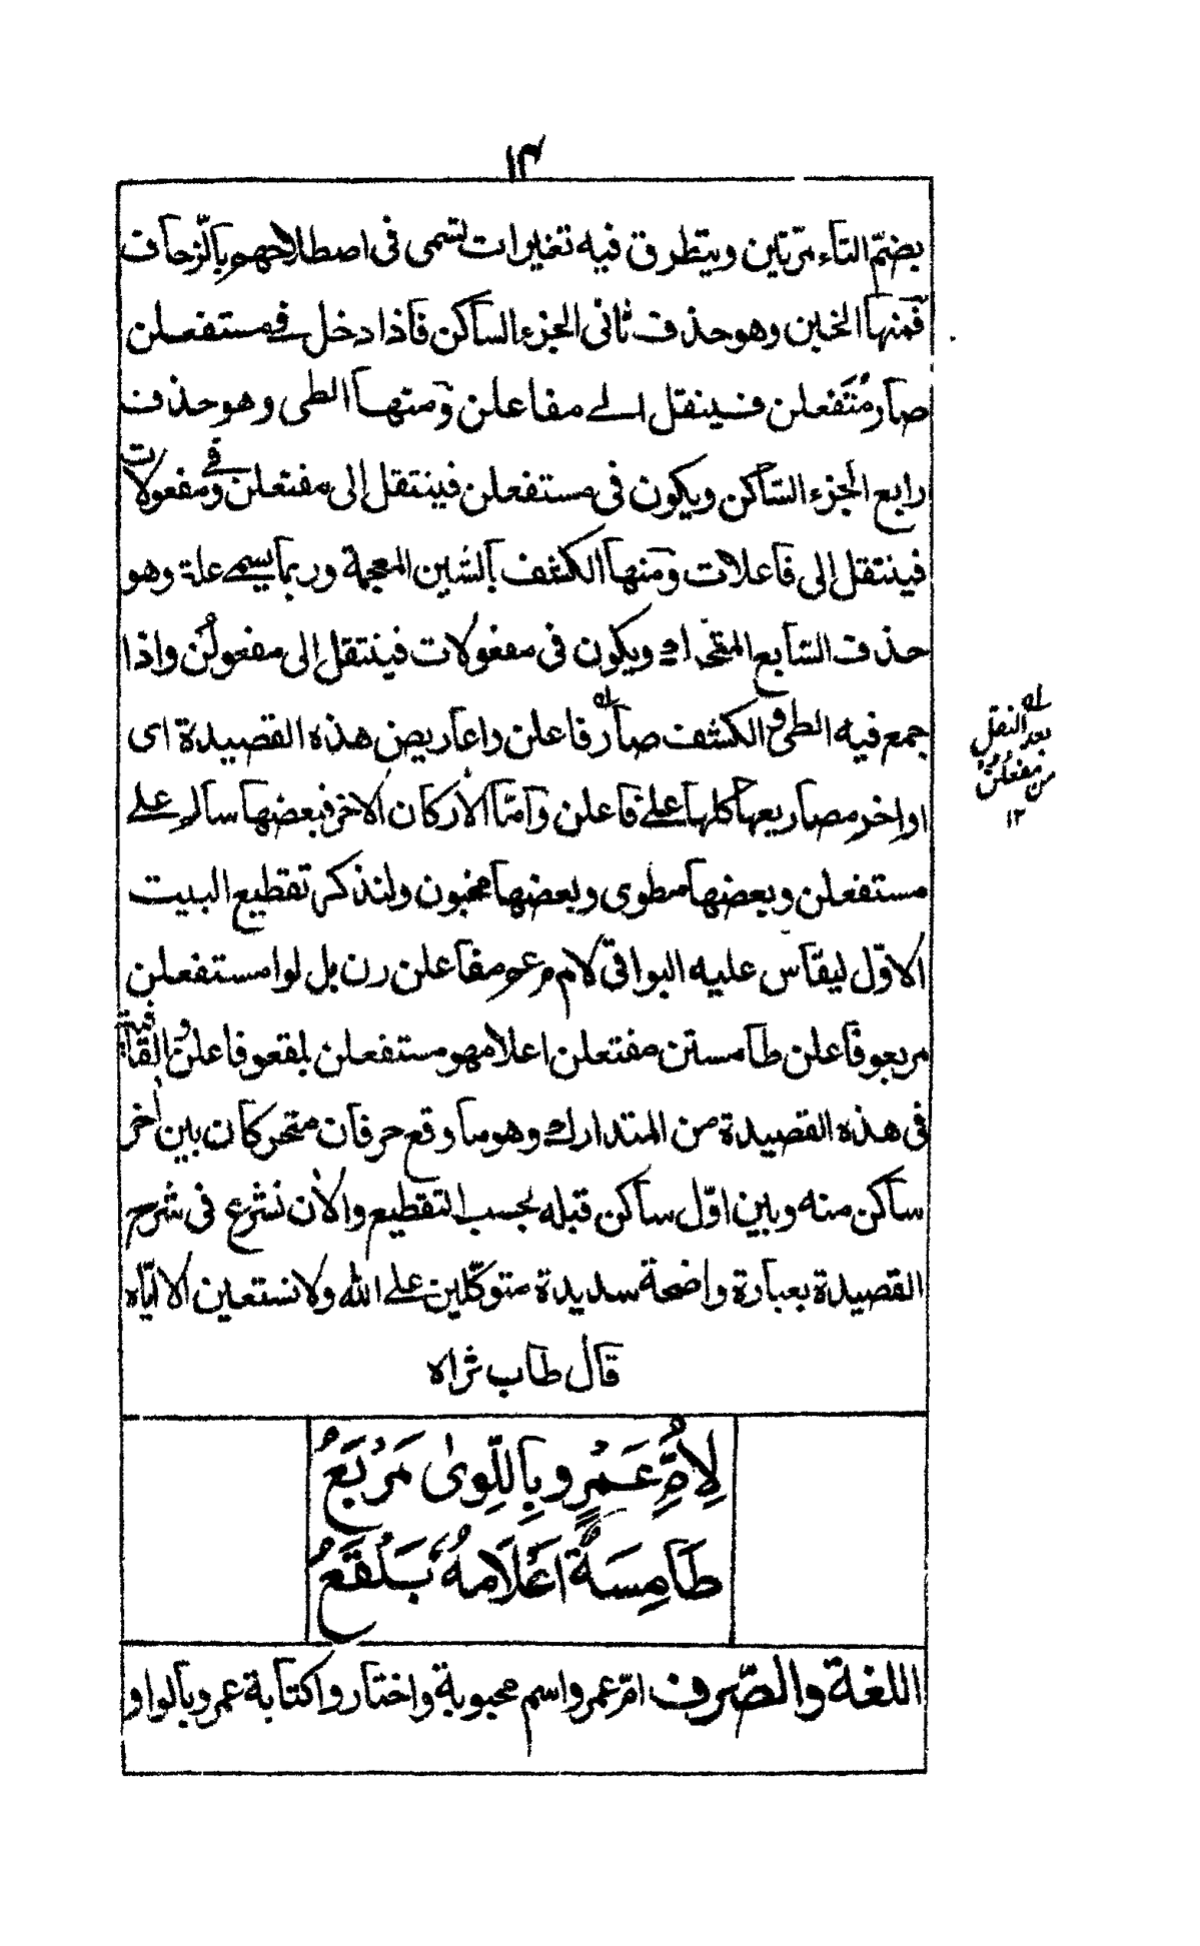 ١٣
بضمّ التاء مرّتين ويتطرق فيه تغيرات تسمى فى اصطلاحهم بالزّحاف
فَمنها الخبن وهو حذف ثانى الجزء الساكن فاذا دخل فے مستفعلن
صار مُتَفعلن فينقل الے مفاعلن وَمنها الطى وهو حذف
رابع الجزء السّاكن ويكون فى مستفعلن فينتقل إلى مفتعلن وفے مفعولات
فينتقل إلى فاعلات وَمنها الكشف بالشين المعجمة وربما يسمے علة وهو
حذف السّابع المتحرك ويكون فى مفعولات فينتقل إلى مفعولن واذا
جمع فيه الطى و الكشف صار فاعلن واعاريض هذه القصيدة اى
اواخر مصاريعها كلها علے فاعلن وَامّا الأركان الاخر فبعضها سالم علے
مستفعلن وبعضها مطوى وبعضها مخبون ولنذكر تقطيع البيت
الاوّل ليقاس عليه البواقى لام مرعم مفاعلن رن بل لوا مستفعلن
مربعو فاعلن طامستن مفتعلن اعلامهو مستفعلن بلقعو فاعلن والقافية
فى هذه القصيدة من المتدارك وهو ما وقع حرفان متحركان بين أخر
ساكن منه وبين اوّل ساكن قبله بحسب التقطيع والأن نشرع فى شرح
القصيدة بعبارة واضحة سديدة متوكّلين علے الله ولا نستعين الا ايّاه
قال طاب ثراه
لِاُمِّ عَمْرٍو بِاللِّوىٰ مَرْبَعُ
طَامِسَةٌ اَعْلَامهُ بَلْقَعُ
اللغة والصّرف امّ عمرو اسم محبوبة واختاروا كتابة عمرو بالواو
له
بعد النقل
من مفعلن
١٢